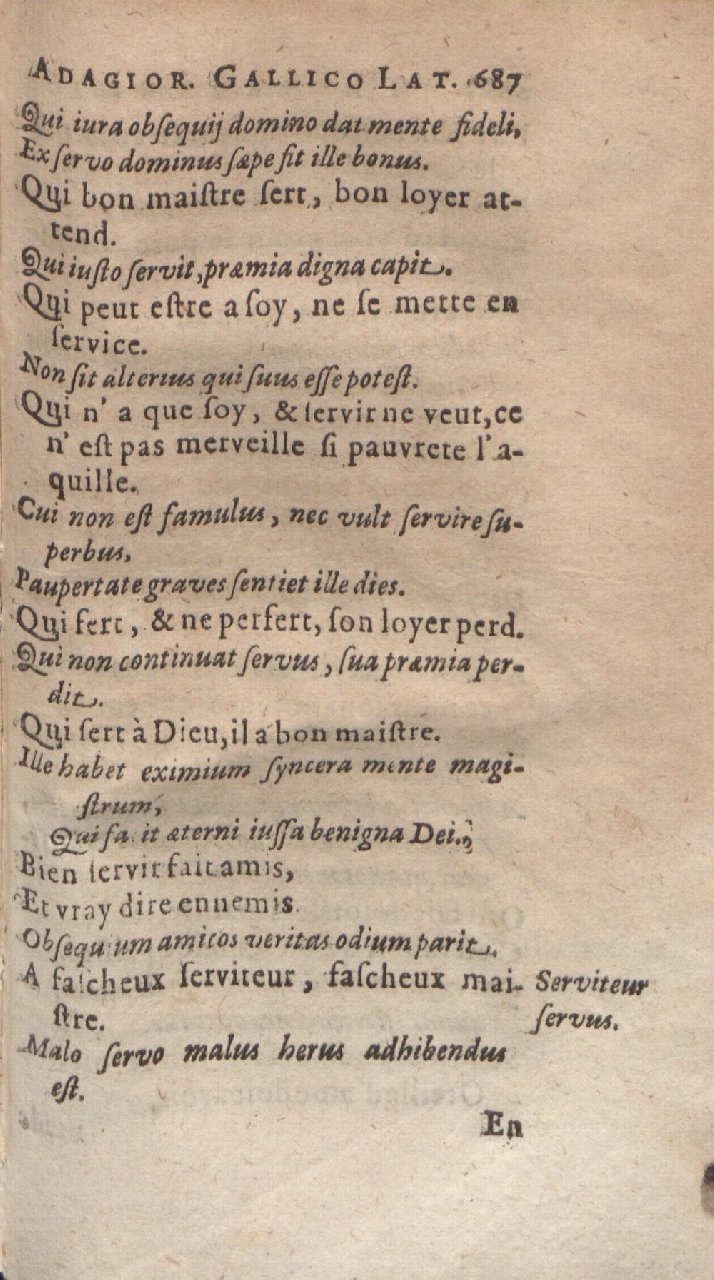 ADAGIOR. GALLICO LAT. 687
Qui iura obſequij domino dat mente fideli,
Ex ſervo dominus ſæpe fit ille bonus.
Qui bon maiſtre ſert, bon loyer at-
tend.
Qui iuſto ſervit, præmia digna capit.
Qui peut eſtre a ſoy, ne ſe mette en
ſervice.
Non ſit alterius qui ſuus eſſe poteſt.
Qui n' a que ſoy, & ſervir ne veut, ce
n' eſt pas merveille ſi pauvrete l'a-
quille.
Cui non eſt famulus, nec vult ſervire ſu-
perbus,
Paupertate graves ſentiet ille dies.
Qui ſert, & ne perſert, ſon loyer perd.
Qui non continuat ſervus, ſua præmia per-
dit.
Qui ſert à Dieu, il a bon maiſtre.
Ille habet eximium ſyncera mente magi-
ſtrum,
Qui fa it æterni iuſſa benigna Dei.
Bien ſervir fait amis,
Et vray dire ennemis.
Obſequium amicos veritas odium parit.
A faſcheux ſerviteur, faſcheux mai-
ſtre.
Serviteur
ſervus.
Malo ſervo malus herus adhibendus
eſt.
En